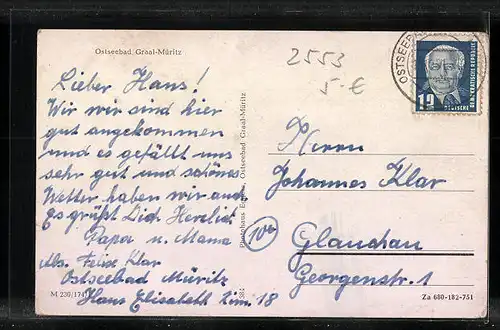 Ostseebad Graal-Müritz
2553
5.-€
Lieber Hans!
Wir wir sind hier
gut angekommen
und es gefällt uns
sehr gut und schönes
Wetter haben wir auch
Es grüßt Dich Herzlich
Papa u. Mama
Abs. Felix Klar
Ostseebad Müritz
Haus Elisabeth Zim. 18
M 230/174
Ostseebad Graal-Müritz
Herrn
Johannes Klar
Glauchau
Georgenstr. 1
10b
Za 680-182-751
OSTSEEB
12
DEUTSCHE
DEMOKRATISCHE REPUBLIK